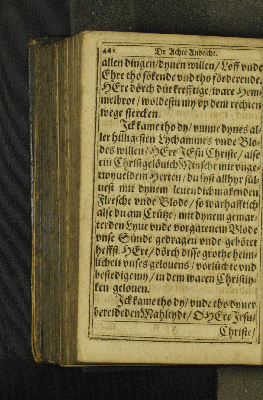 442 De Achte Andacht.
allen dingen/ dynen willen/ Loff vnde
Ehre tho sökende vnd tho förderende.
HEre dörch düt krefftige/ ware Hem-
melbrot/ woldestu my vp dem rechten
wege stercken.
Ick kame tho dy/ vmme dynes al-
ler hilligesten Lychammes vnde Blo-
des willen/ HEre JEsu Christe/ alse
ein Christgelövich Minsche mit vnge-
twyueldem Herten/ du syst allhyr sül-
uest mit dynem leuendichmakenden
Flesche vnde Blode/ so warhafftich
alse du am Crütze/ mit dynem gemar-
terden Lyue vnde vorgatenem Blode
vnse Sünde gedragen vnde geböret
heffst HEre/ dörch disse grothe heim-
licheit vnses gelouens/ vorlüchte vnd
bestedige my/ in dem waren Christly-
ken gelouen.
Ick kame tho dy/ vnde tho dyner
bereideden Mahltydt/ O HEre Jesu
Christe/